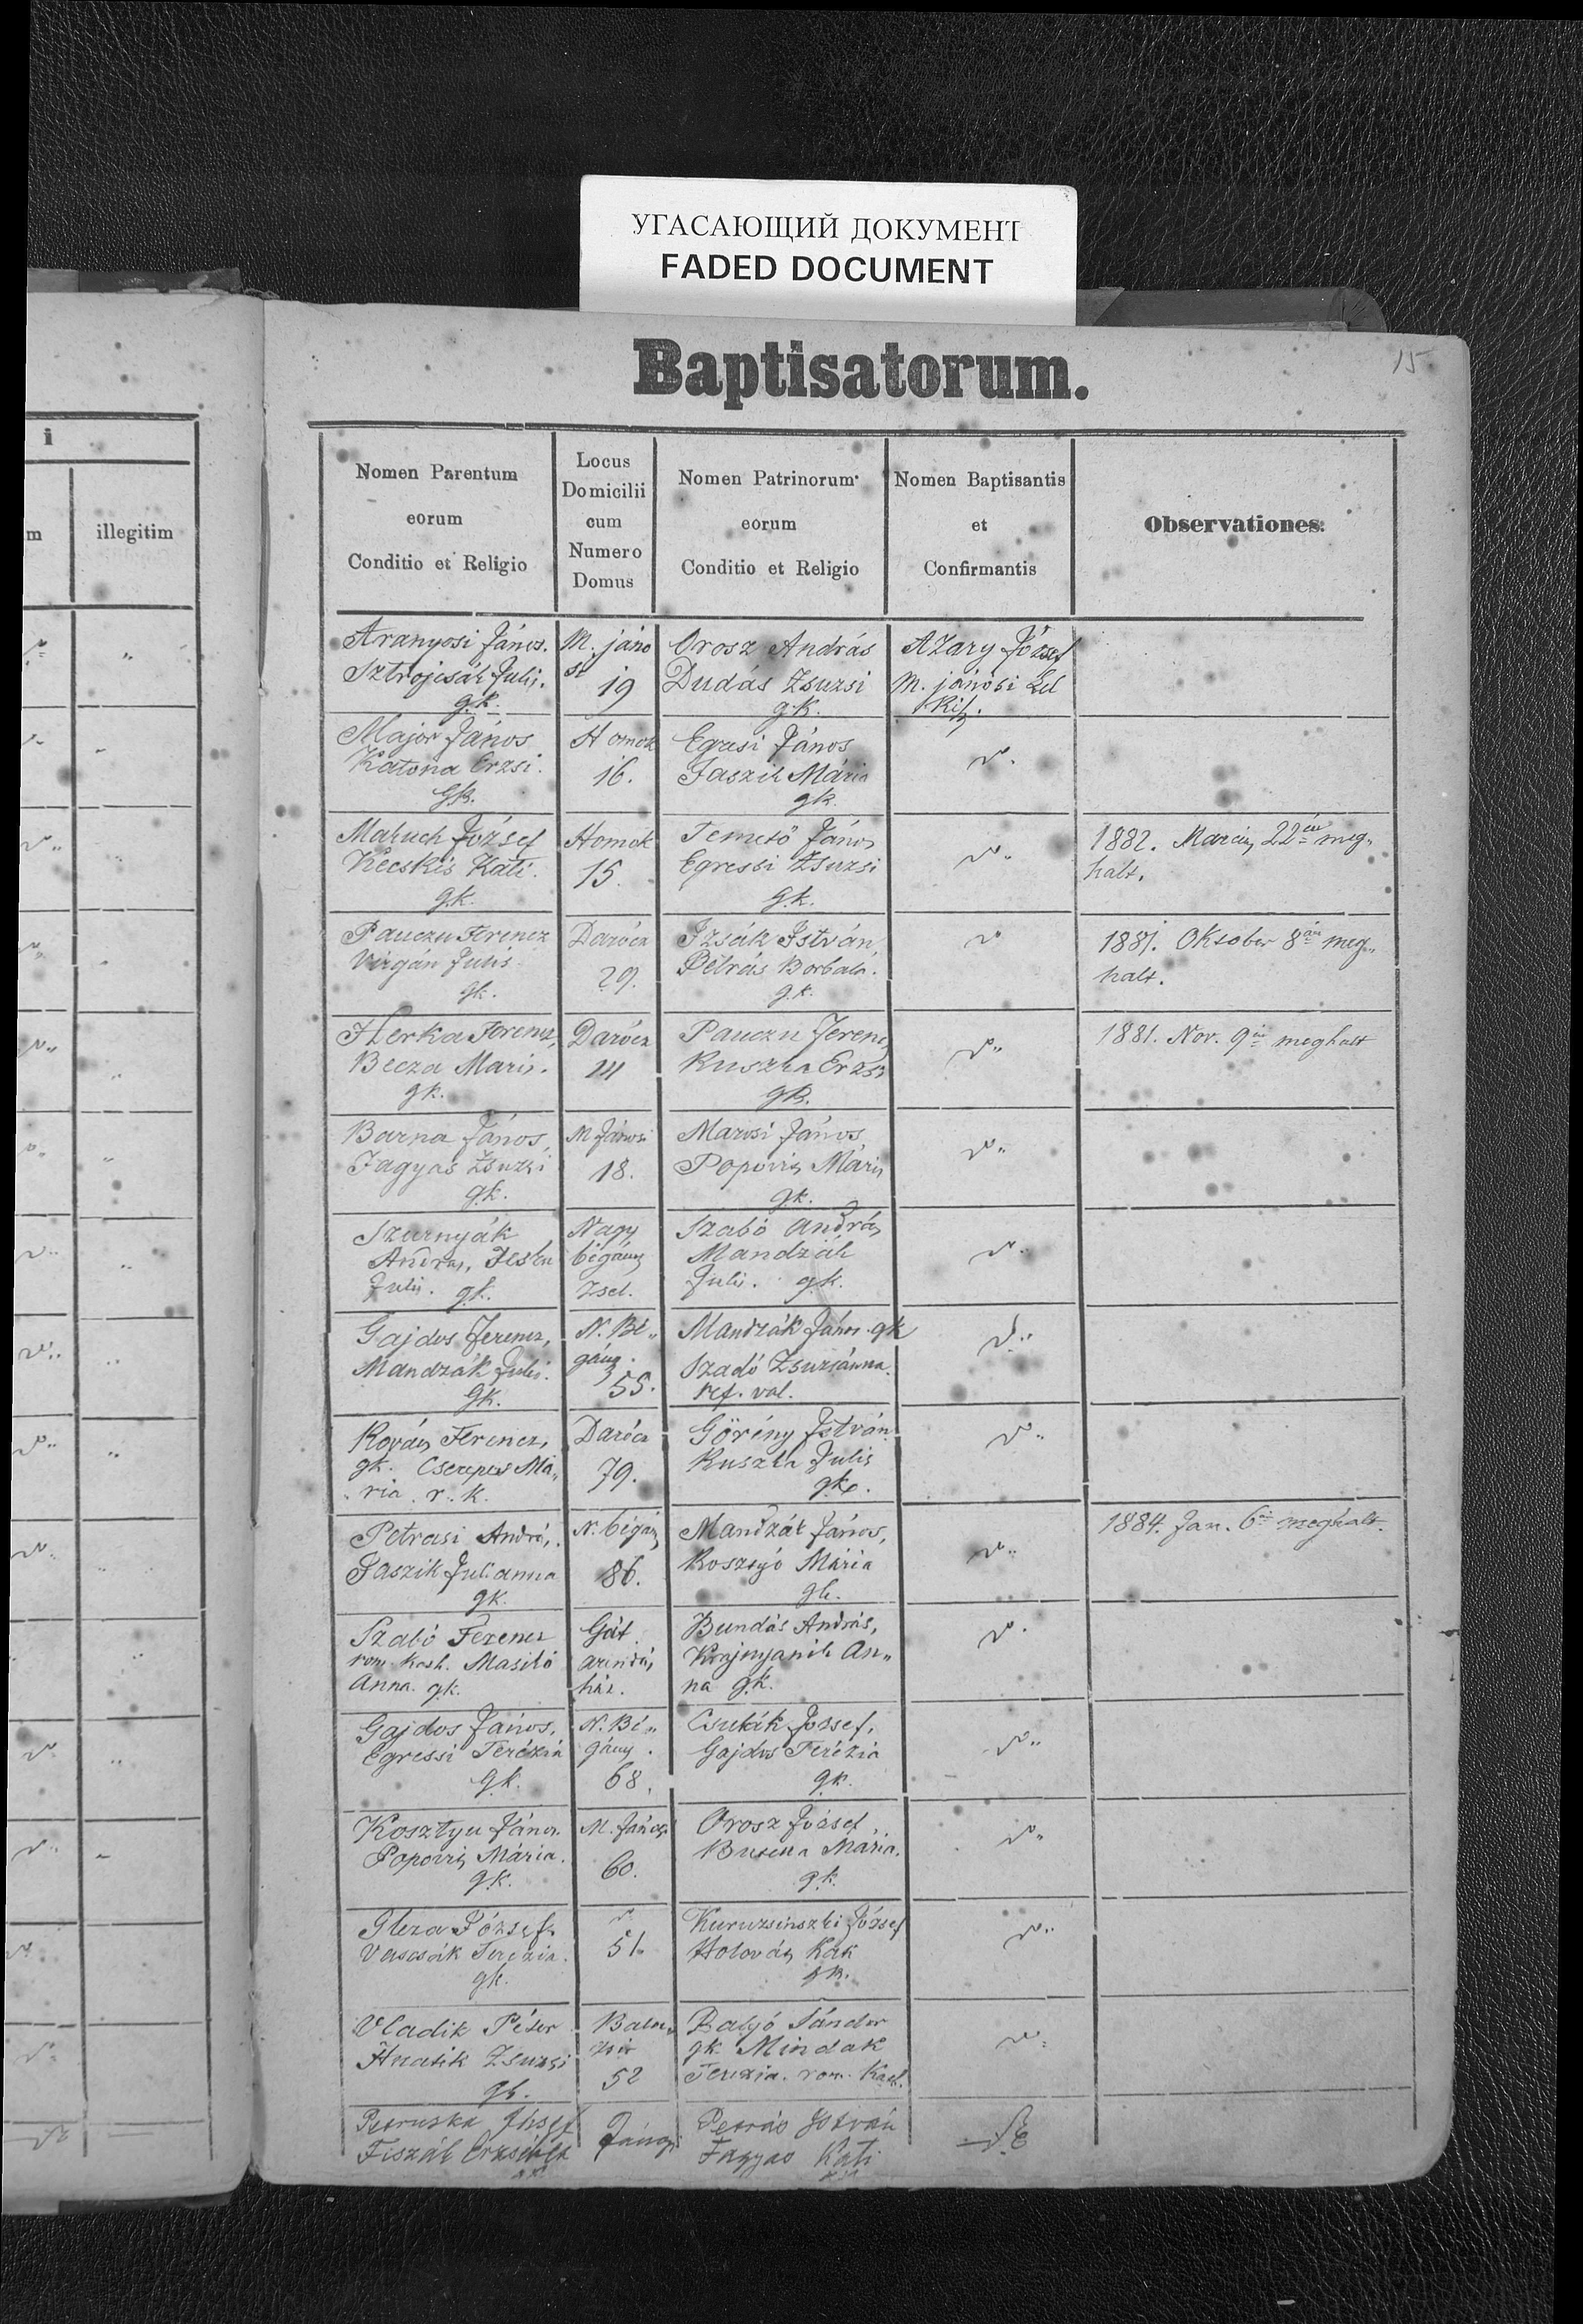 УГАСАЮЩИЙ ДОКУМЕНТ
FADED DOCUMENT
Baptisatorum.
15
i
m
illegitim
Nomen Parentum
eorum
Conditio et Religio
Locus
Domicilii
cum
Numero
Domus
Nomen Patrinorum
eorum
Conditio et Religio
Nomen Baptisantis
et
Confirmantis
Observationes.
Aranyosi János.
Juli.
gk.
M. jáno
si
19
Orosz András
Dudás Zsuzsi
g.k.
Azary József
M. jánosi Lel
kész.
Major János
Katona Erzsi.
gk.
Homok
16.
Egresi János
Jaszik Mária
gk.
József
Kecskés Kati.
g.k.
Homok
15.
Temető János
Egressi Zsuzsi
g.k.
1882. 22én meg„
halt.
Pauczu Ferencz
Virgán Julis
gk.
Darócz
29.
Izsák István
Petrás Borbála.
g.k.
1881. Oktober 8án meg„
halt.
Herka Ferencz,
Becza Maris.
gk.
Darócz
111
Pauczu Ferencz
Ruszka Erzsi
gk.
1881. Nov. 9én meghalt
Barna János,
Fagyas Zsuzsi
g.k.
M Jánosi
18.
János
Popovics Máris
gk.
Szurnyák
András,
Julis. gk.
Nagy
bégány
Zsel.
Szabó András
Mandzák
Julis. gk.
Gajdos Ferencz,
Mandzák Julis.
gk.
N. Bé„
gány.
55.
Mandzák János. gk
Szabó Zsuzsánna.
ref. val.
Kovács Ferencz,
gk. Cserepes Má„
ria. r. k.
Darócz
79.
Görény István
Ruszka Julis
gk.
Petrasi András,
Jaszik Julianna
gk.
N. bégány
86.
Mandzák János,
Kosztyó Mária
gk.
1884. Jan. 6án meghalt.
Szabó Ferencz
rom. kath. Masitó
Anna. g.k.
Gát
arendás
ház.
Bundás András,
Krajnyanik An„
na gk.
Gajdos János,
Egressi Terézia
gk.
N. Bé„
gány.
68.
Csuták József,
Gajdos Terézia
gk.
Kosztyu János.
Popovics Mária.
g.k.
M. Jánosi
60.
Orosz József,
Mária.
g.k.
Gleza József
Vascsák Terézia.
gk.
51.
József
Holovács
gk.
Vladik Péter
Hnatik Zsuzsi
gk.
52
Balyó Sándor
gk. Mindak
Terezia. rom. Kath.
Petruska József
Erzsébet
Jánosi
Petrás István
Fagyas Kati